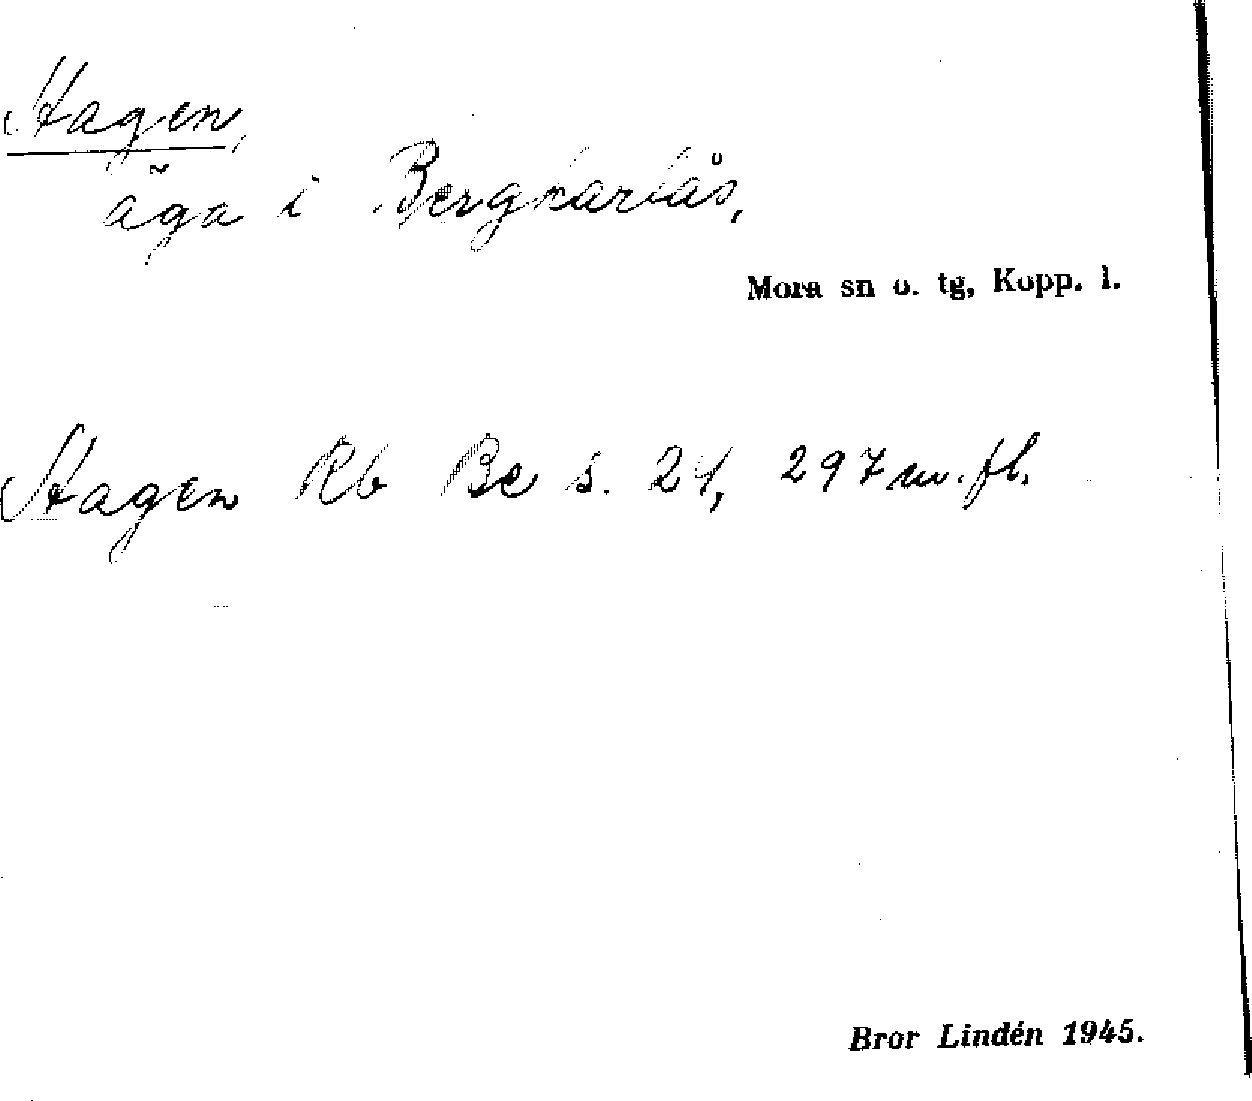 Hagen,
äga i Bergkarlås,
Mora sn o. tg, Kopp. l.
Hagen Rb Be s. 24, 297 m.fl.
Bror Lindén 1945.